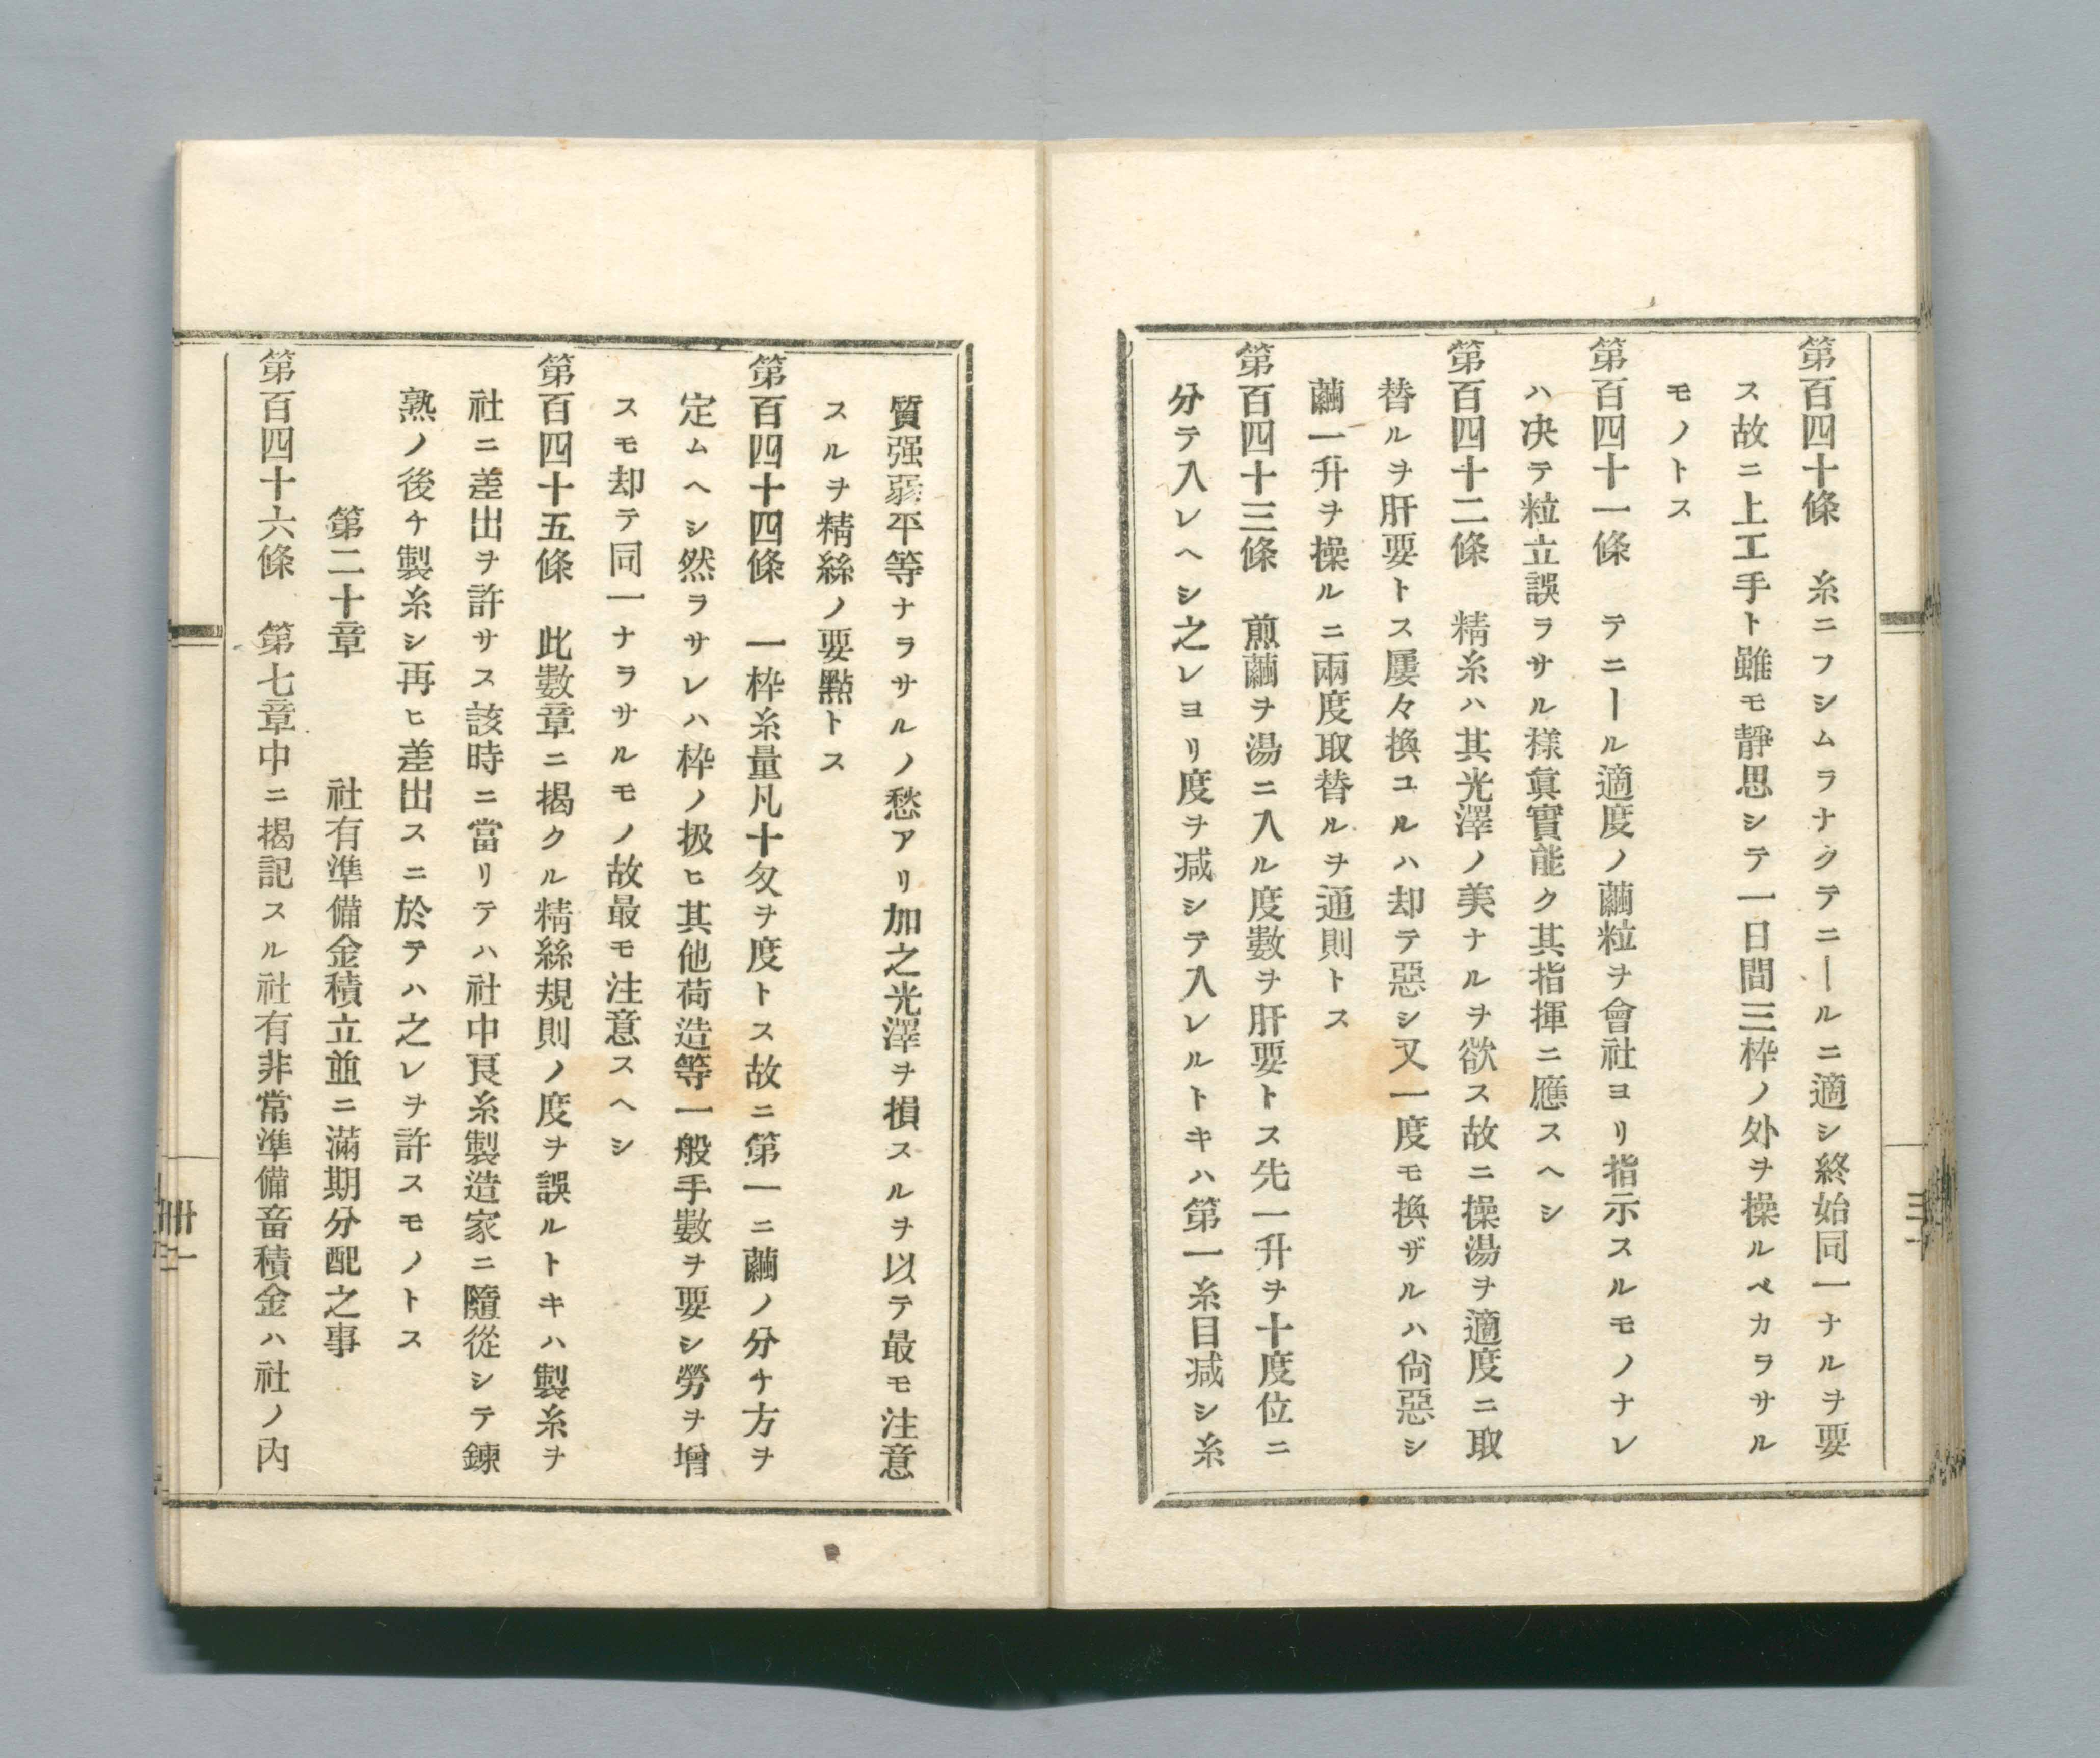 第百四十條　糸ニフシムラナクテニールニ適シ終始同一ナルヲ要
ス故ニ上工手ト雖モ靜思シテ一日間三枠ノ外ヲ操ルベカラサル
モノトス
第百四十一條　テニール適度ノ繭粒ヲ會社ヨリ指示スルモノナレ
ハ决テ粒立誤ラサル樣眞實能ク其指揮ニ應スヘシ
第百四十二條　精糸ハ其光澤ノ美ナルヲ欲ス故ニ操湯ヲ適度ニ取
替ルヲ肝要トス屢々換ユルハ却テ惡シ又一度モ換ザルハ尙惡シ
繭一升ヲ操ルニ兩度取替ルヲ通則トス
第百四十三條　煎繭ヲ湯ニ入ル度數ヲ肝要トス先一升ヲ十度位ニ
分テ入レヘシ之レヨリ度ヲ减シテ入レルトキハ第一糸目减シ糸
質强弱平等ナラサルノ愁アリ加之光澤ヲ損スルヲ以テ最モ注意
スルヲ精絲ノ要點トス
第百四十四條　一枠糸量凡十匁ヲ度トス故ニ第一ニ繭ノ分チ方ヲ
定ムヘシ然ラサレハ枠ノ扱ヒ其他荷造等一般手數ヲ要シ勞ヲ增
スモ却テ同一ナラサルモノ故最モ注意スヘシ
第百四十五條　此數章ニ揭クル精絲規則ノ度ヲ誤ルトキハ製糸ヲ
社ニ差出ヲ許サス該時ニ當リテハ社中良糸製造家ニ隨從シテ鍊
熟ノ後チ製糸シ再ヒ差出スニ於テハ之レヲ許スモノトス
第二十章　社有準備金積立並ニ滿期分配之事
第百四十六條　第七章中ニ揭記スル社有非常準備畜積金ハ社ノ內
卅一